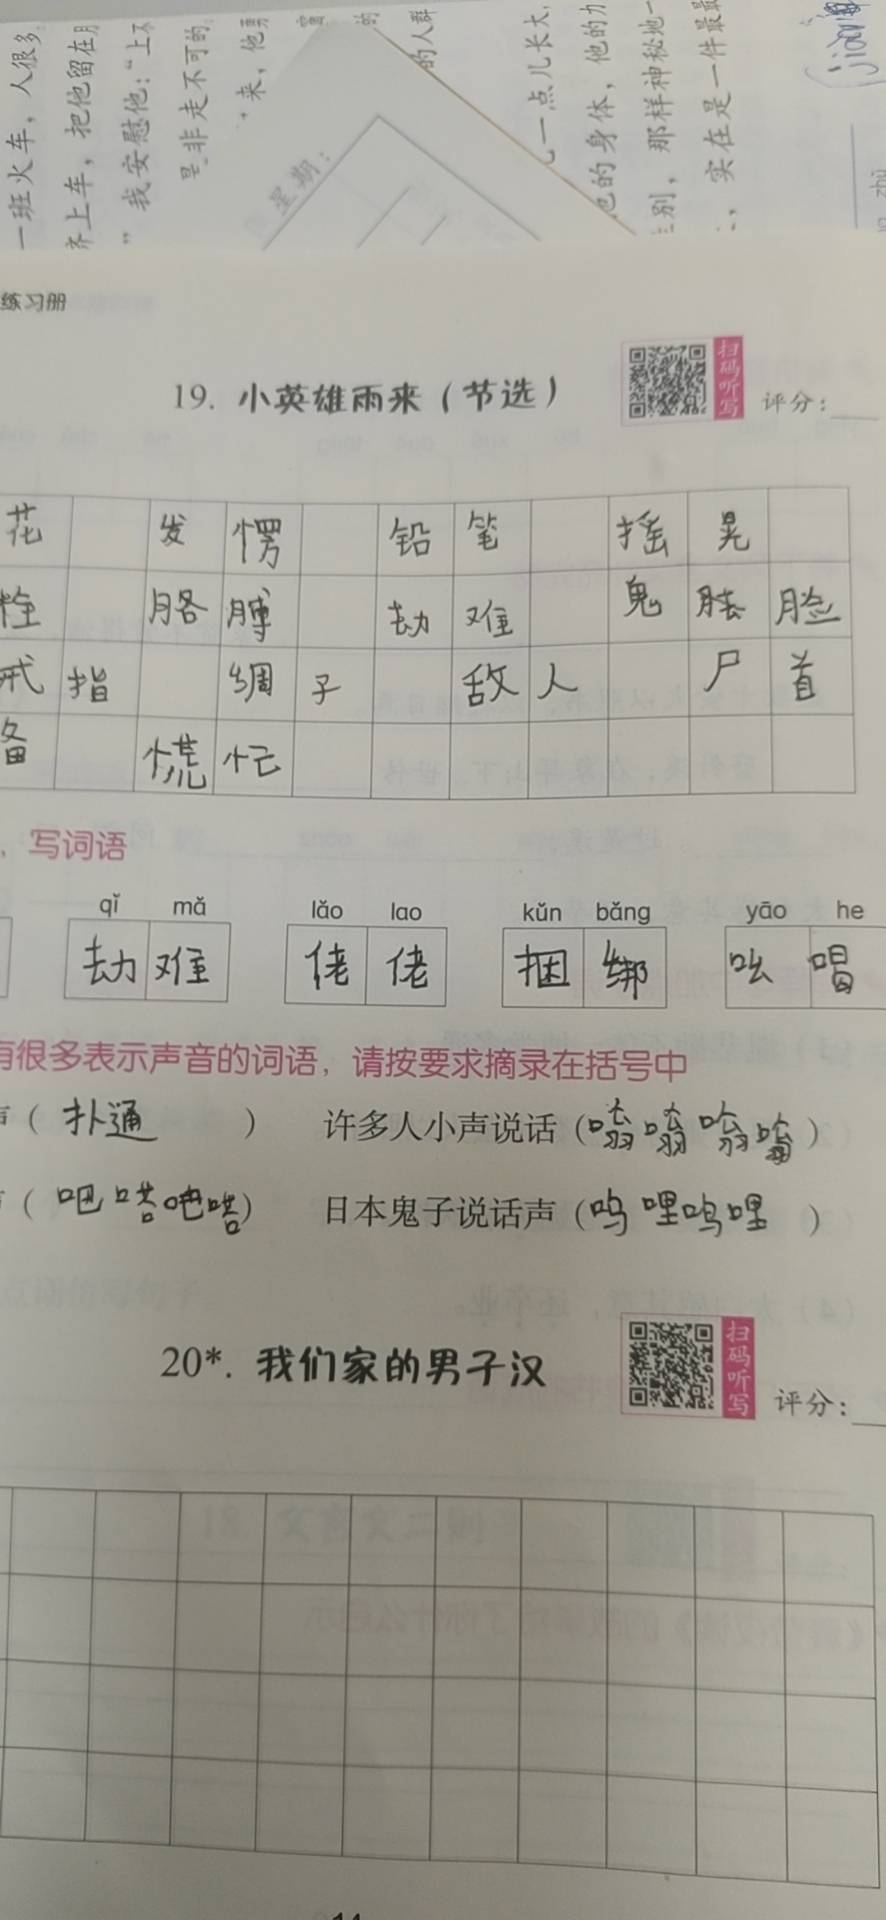 一班火车，人很多
齐上车，把他留在月
”我安慰他：“上不
是非走不可的
来，他
的
的人群
星期：
一点儿长大，
他的身体，他的力
别，那样神秘地
，实在是一件最
zhù
练习册
19. 小英雄雨来（节选）
扫码听写
评分：
花 发愣 铅笔 摇晃
栓 胳膊 劫难 鬼 脸
戒指 绸子 敌人 尸首
备 慌忙
、写词语
qǐ mǎ lǎo lao kǔn bǎng yāo he
劫难 佬佬 捆绑 吆喝
有很多表示声音的词语，请按要求摘录在括号中
声（扑通） 许多人小声说话（嗡嗡嗡嗡）
声（吧嗒吧嗒） 日本鬼子说话声（呜哩呜哩）
20*. 我们家的男子汉
扫码听写
评分：